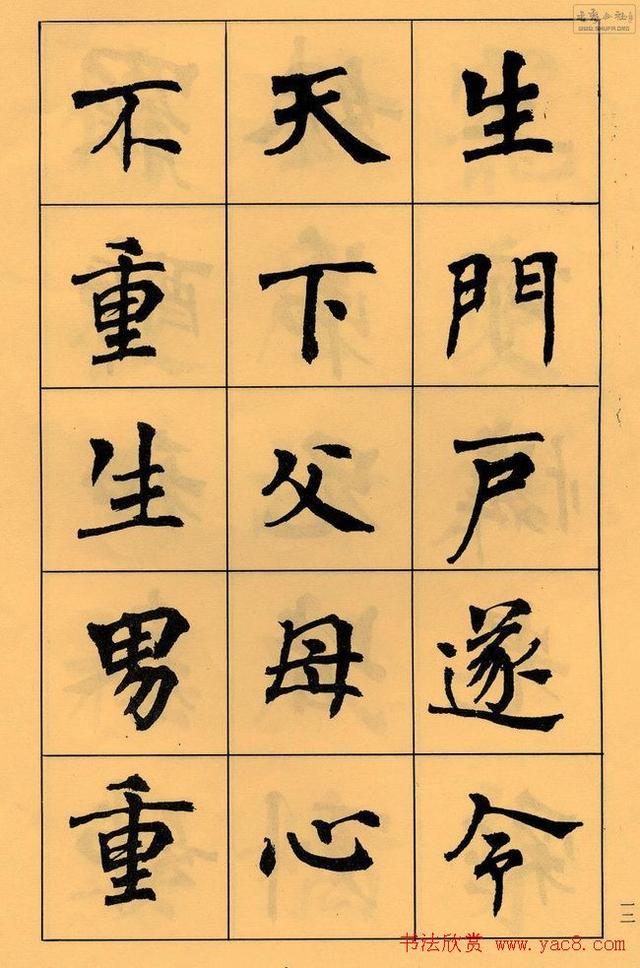 生門戶遂令
天下父母心
不重生男重
一二
书法欣赏 www.yac8.com
WWW.SHUFA.ORG